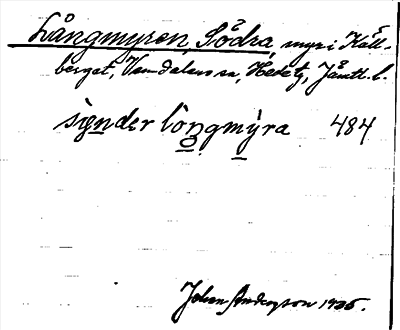 Långmyren, Södra, myr i Käll-
berget, Vemdalens sn, Hede tg, Jämtl. l.
signder löngmȳra 484
Johan Anderson 1935.